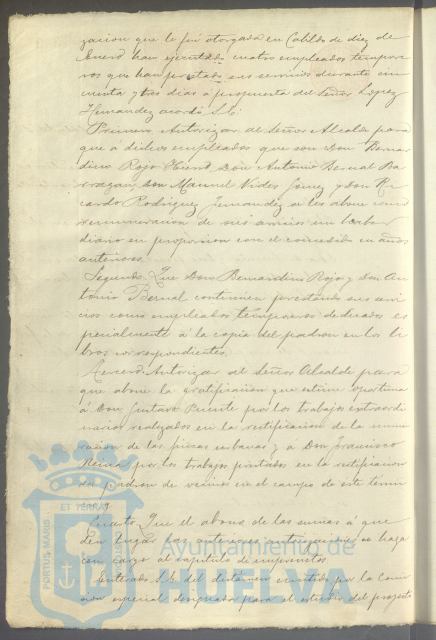 zacion que le fué otorgada en Cabildo de diez de
Enero han ejecutado cuatro empleados tempore-
ros que han prestado sus servicios durante cin-
cuenta y tres dias á propuesta del Señor López
Hernandez acordó S.E.:
Primero. Autorizar al Señor Alcalde para
que á dichos empleados que son Don Bernar-
dino Rojo Don Antonio Bernal Ba-
rragan, Don Manuel Vides Gomez y Don Ri-
cardo Rodriguez Fernandez se les abone como
remuneracion de sus servicios un haber
diario en proporcion con el concedido en años
anteriores.
Segundo. Que Don Bernardino Rojo y Don An-
tonio Bernal continuen prestando sus servi-
cios como empleados temporeros dedicados es-
pecialmente á la copia del padron en los li-
bros correspondientes.
Tercero. Autorizar al Señor Alcalde para
que abone la gratificacion que estime oportuna
á Don Gustavo Puente por los trabajos extraordi-
narios realizados en la rectificacion de la nume-
racion de las fincas urbanas y á Don Francisco
Reina por los trabajos prestados en la rectificacion
del padron de vecinos en el campo de este termi-
no.
Cuarto. Que el abono de las sumas á que
den lugar las anteriores autorizaciones se haga
con cargo al capitulo de imprevistos.
Enterado S.E. del dictámen emitido por la Comi-
sion especial designada para el estudio del proyecto
PORTUS MARIS
ET TERRAE
Ayuntamiento de
HUELVA